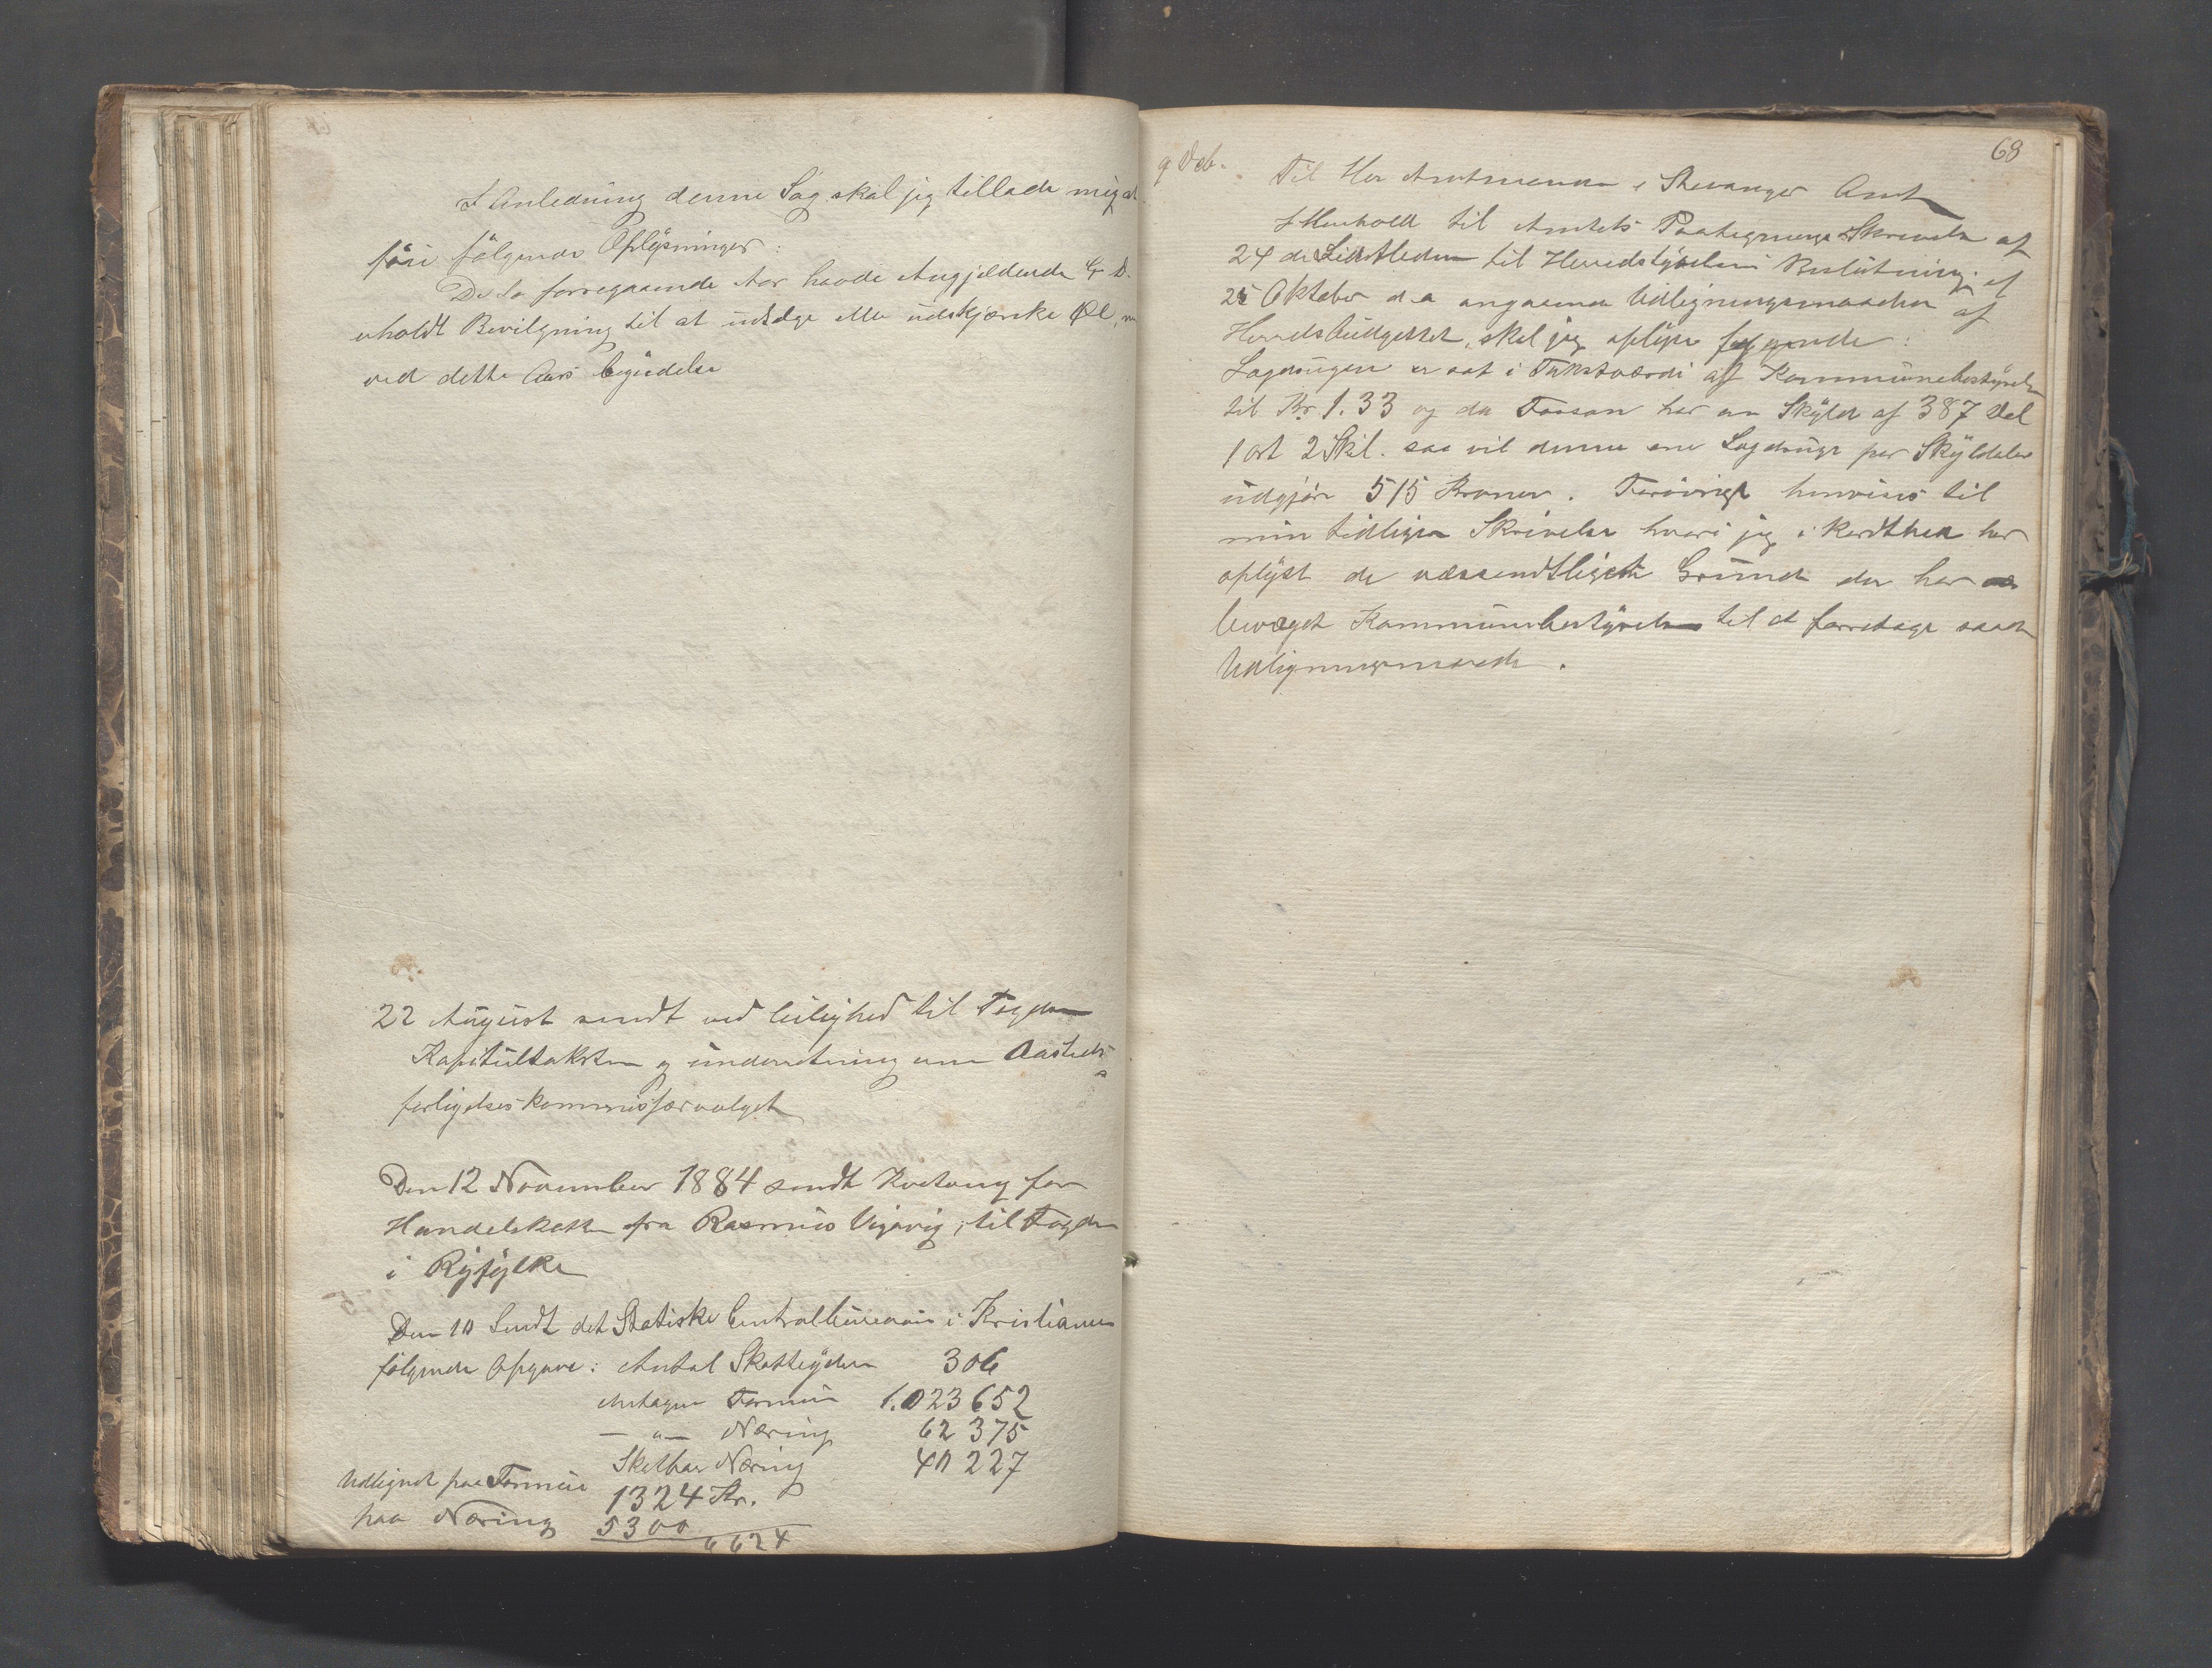 I Anledning denne Sag skal jeg tillade mig at
føie følgende Oplysninger:
De to forregaaende Aar havde Angjeldende G. D.
erholdt Bevilgning til at udsælge eller udskjænke Øl,
ved dette Aars begyndelse
22 August sendt ved leilighed til Fogden
Kapitultaksten og underretning om Aasteds
forligelseskommissærvalget
Den 12 November 1884 sendt Kvitering for
Handelskatten fra Rasmus Vigavig, til Fogden
i Ryfylke
Den 10 Sendt det Statiske Centralbureau i Kristiania
følgende Opgave: Antal Skatteydere 306
Antagen Formue 1.023652
— " — Næring 62 375
Skatbar Næring 40 227
Udlignet paa Formue 1324 Kr.
paa Næring 5300
6624
68
9 Deb.
Til Her Amtmanden i Stavanger Amt
I Henhold til Amtets Paategnings Skrivelse af
24 de Sidstleden til Herredstyrelsens Beslutning af
25 Oktober d. a angaaende Udligningsmaaden af
Herredsbudgettet, skal jeg oplyse følgende:
Lagdsugen er sat i Takstværdi af Kommunebestyrelsen
til Kr. 1.33 og da har en Skyld af 387 Dal
1 ort 2 Skil. saa vil denne ene per Skylddaler
udgjøre 515 Kroner. Forøvrigt henvises til
min tidligere Skrivelse hvori jeg i Korthed har
oplyst de væssendtligste Grunde der har
bevæget Kommunebestyrelsen til at forretage saadan
Udligningsmaade.